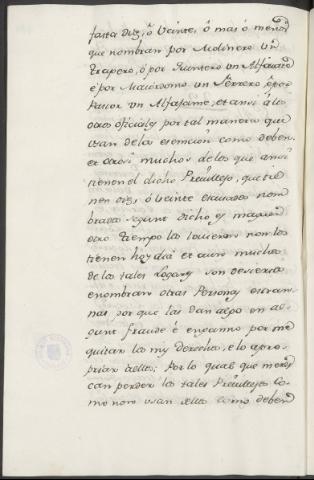 fasta diez, o veinte, o mas o menos
que nombran por Molinero un
trapero, o por Quintero un Alfayate
e por Maiordomo un Ferrero, e por
Pastor un Alfajeme, et ansi a los
otros oficiales por tal manera que
usan de la esencion como deben,
et otrosi muchos de los que ansi
tienen el dicho Previllejo, que tie
nen diez, o veinte escusados nom
brados segunt dicho es, maguer
otro tiempo los tovieron non los
tienen hoy dia et aun muchos
de los tales Logares son desiertos
e nombran otras Personas estran
nas por que les dan algo en al
gunt fraude e enganno por me
quitar los mis derechos, e lo apro
priar a ellos. Por lo qual que meres
can perder los tales Previllejos co
mo non usan dello como deben